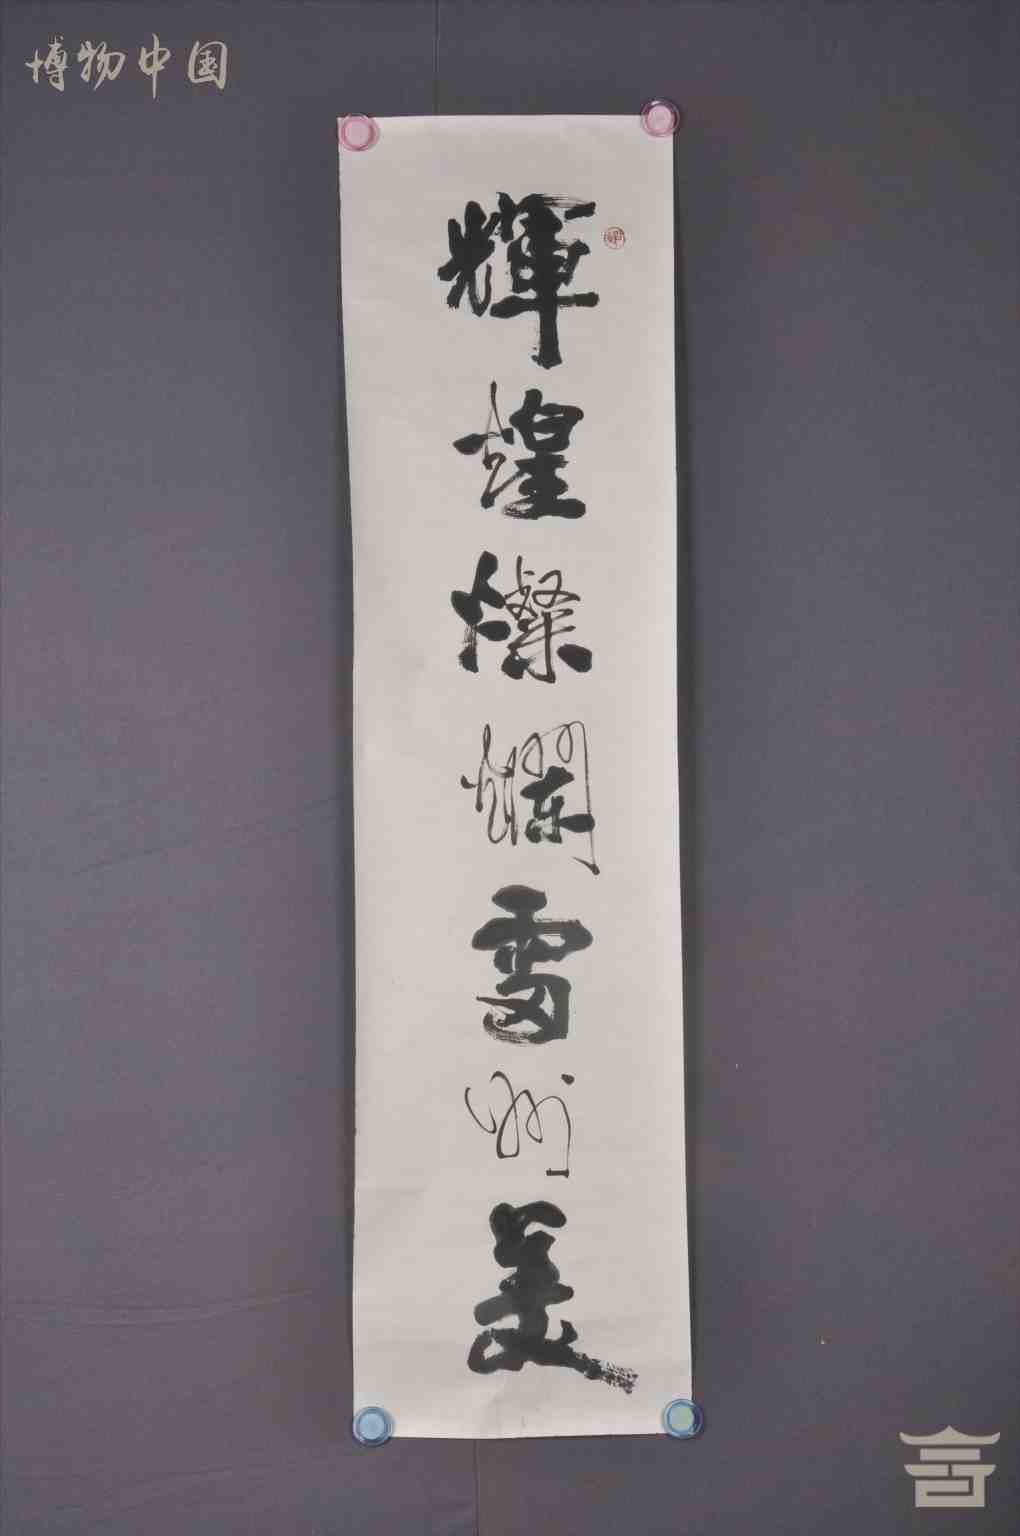 博物中国
輝煌燦爛雪州美